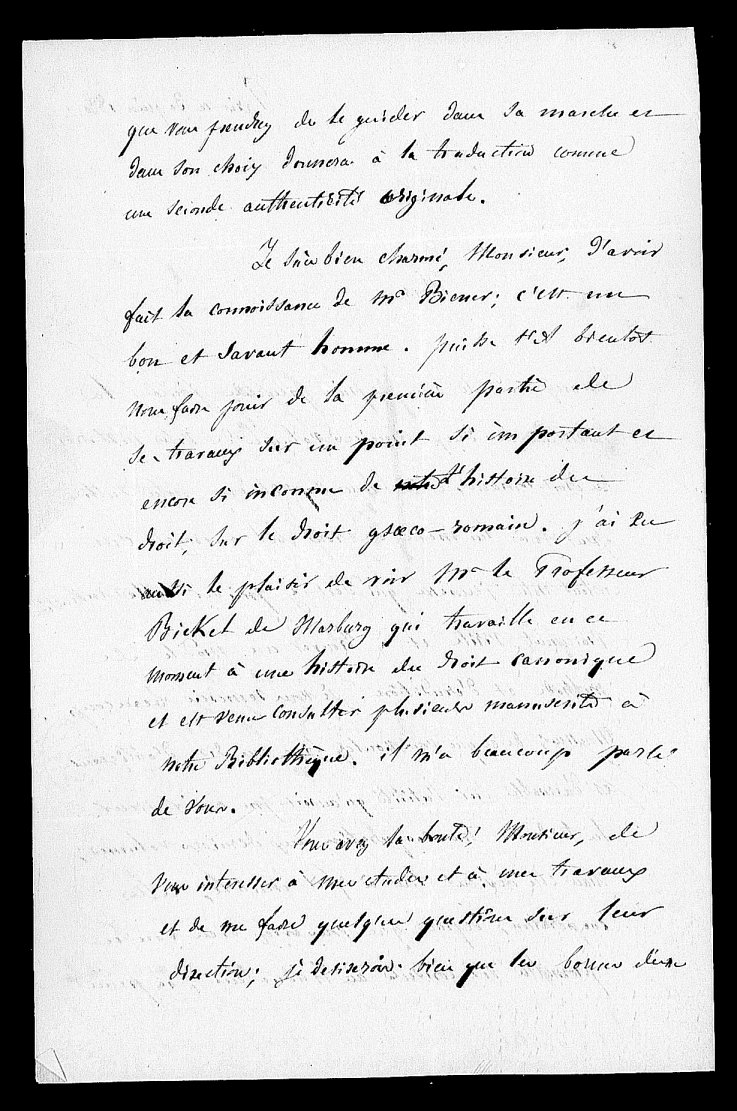 que vous prendrez de le guider dans sa marche et
dans son choix donnera à la traduction comme
une seconde authenticité originale.
Je suis bien charmé, Monsieur, d'avoir
fait la connoissance de Mr Biener; c'est un
bon et savant homme. puisse t'il bientot
nous faire jouir de la première partie de
ses travaux sur un point si important et
encore si inconnu de l'histoire du
droit, sur le droit græco-romain. j'ai eu
aussi le plaisir de voir Mr le Professeur
Bickel de Marburg qui travaille en ce
moment à une histoire du droit canonique
et est venu consulter plusieurs manuscrits à
notre Bibliothèque. il m'a beaucoup parlé
de vous.
Vous avez la bonté, Monsieur, de
vous interesser à mes etudes et à mes travaux
et de me faire quelques questions sur leur
direction; je desirerois bien que les bonnes d'une